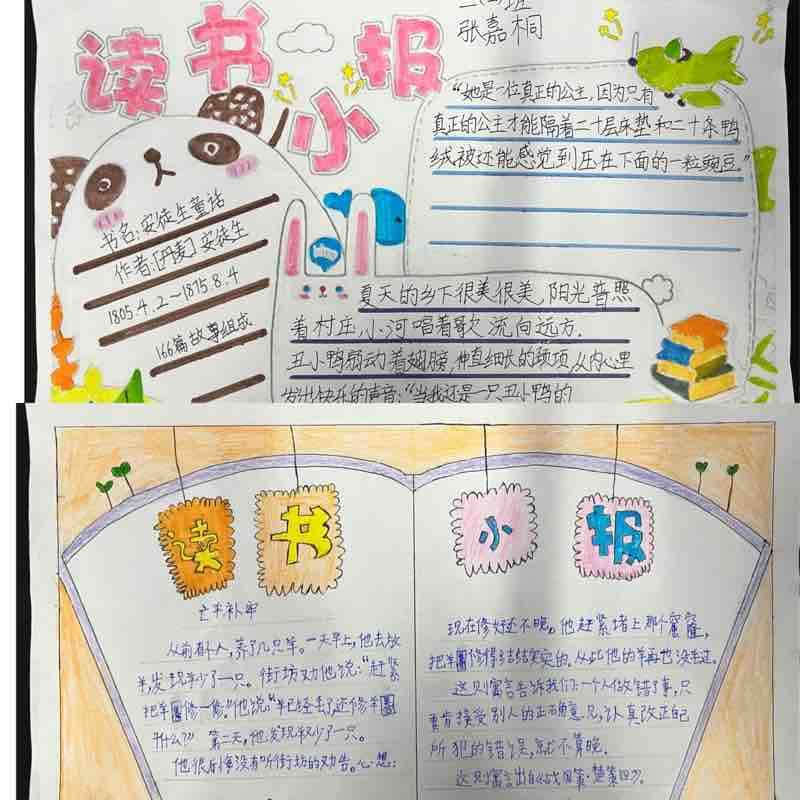 读书小报
张嘉桐
“她是一位真正的公主,因为只有
真正的公主才能隔着二十层床垫和二十条鸭
绒被还能感觉到压在下面的一粒豌豆.”
书名:安徒生童话
作者:[丹麦]安徒生
1805.4.2~1875.8.4
166篇故事组成
夏天的乡下很美很美,阳光普照
着村庄,小河唱着歌流向远方.
丑小鸭扇动着翅膀,伸直细长的颈项,从内心里
发出快乐的声音:“当我还是一只丑小鸭的
读书小报
亡羊补牢
从前有个人,养了几只羊。一天早上,他去放
羊,发现羊少了一只。街坊劝他说:“赶紧
把羊圈修一修。”他说:“羊已经丢了,还修羊圈
干什么?” 第二天,他发现羊又少了一只。
他很后悔没有听街坊的劝告。心想:
现在修好还不晚。他赶紧堵上那个窟窿,
把羊圈修得结结实实的。从此他的羊再也没丢过。
这则寓言告诉我们:一个人做错了事,只
要肯接受别人的正确意见,认真改正自己
所犯的错误,就不算晚。
这则寓言出自《战国策·楚策四》。